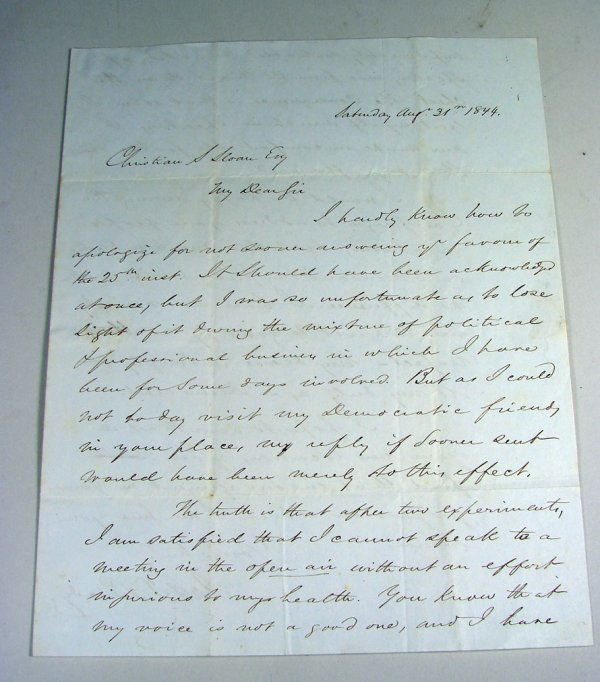 Saturday Augt 31st 1844.
Christian S Sloan Esq
My Dear Sir
I hardly know how to
apologize for not sooner answering yr favour of
the 25th inst. It should have been acknowledged
at once, but I was so unfortunate as to lose
sight of it during the mixture of political
& professional business in which I have
been for some days involved. But as I could
not to day visit my Democratic friends
in your place, my reply if sooner sent
would have been merely to this effect.
The truth is that after two experiments,
I am satisfied that I cannot speak to a
meeting in the open air without an effort
injurious to my health. You know that
my voice is not a good one, and I have